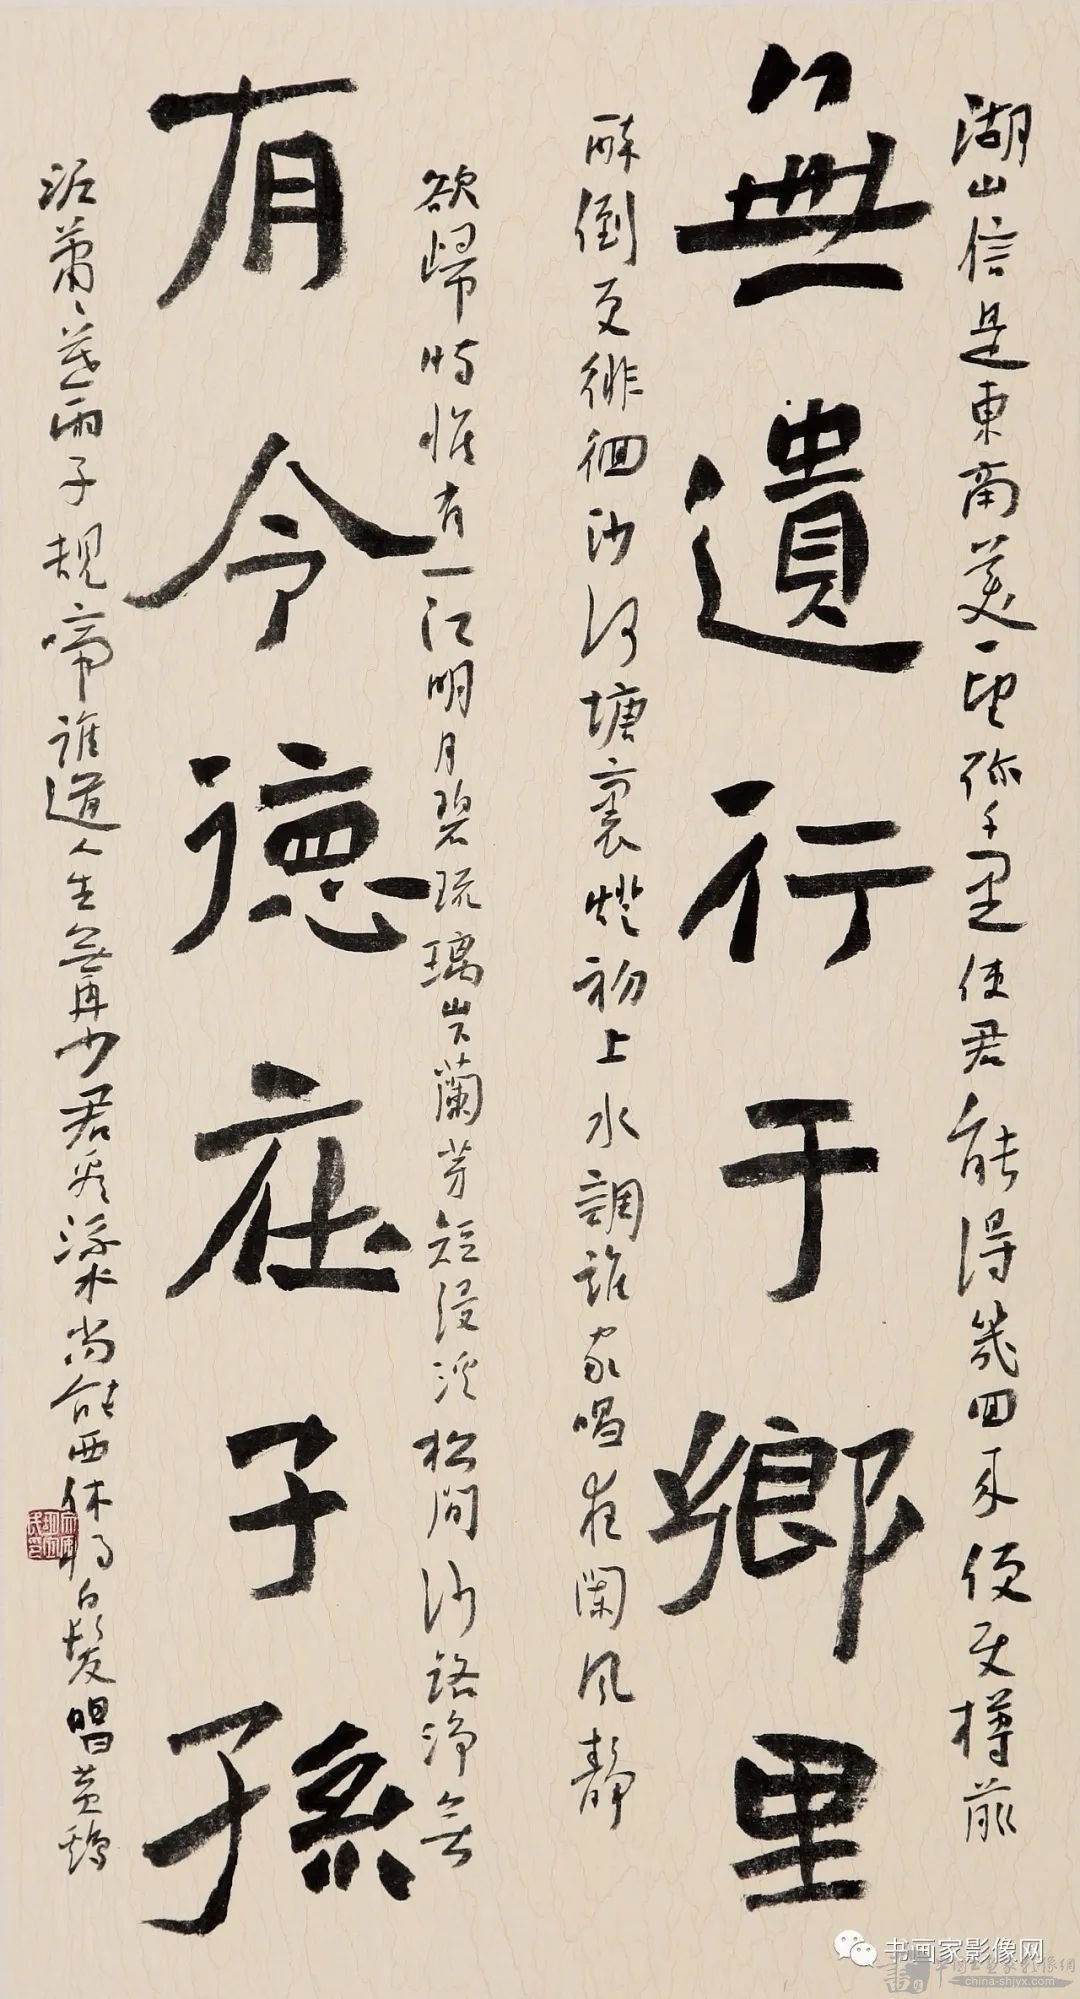 湖山信是東南美一望弥千里使君能得幾回来便使樽前
無遺行于鄉里
醉倒更徘徊沙河塘裏燈初上水調誰家唱夜闌風靜
欲歸時惟有一江明月碧琉璃山下蘭芽短浸溪松間沙路淨無
有令德在子孫
泥蕭〻暮雨子規啼誰道人生無再少君看流水尚能西休將白髮唱黄鷄
书画家影像网
中国书画家影像網
china-shjyx.com